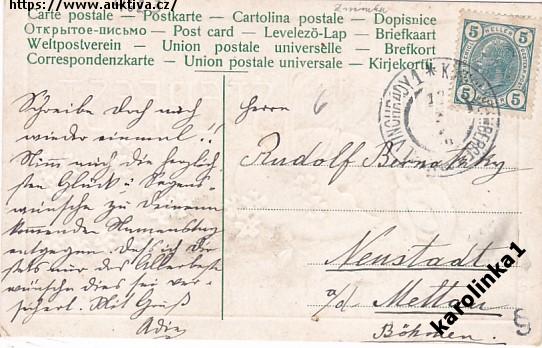 https://www.auktiva.cz/
Carte postale – Postkarte – Cartolina postale – Dopisnice
Открытое-письмо – Post card – Levelező-Lap – Briefkaart
Weltpostverein – Union postale universelle – Brefkort
Correspondenzkarte – Union postale universale – Kirjekortti
5 5
HELLER HELLER
5 5
Schreibe doch auch
wieder einmal!!
Nimm auch die herzlich-
sten Glück- u. Segens-
wünsche zu Deinem
kommenden Namenstag
entgegen. Daß ich Dir
stets nur das Allerbeste
wünsche dies sei ver-
sichert. Mit Gruß
Herrn 6
Rudolf
Neustadt
a/d Mettau
Böhmen.
karolinka1